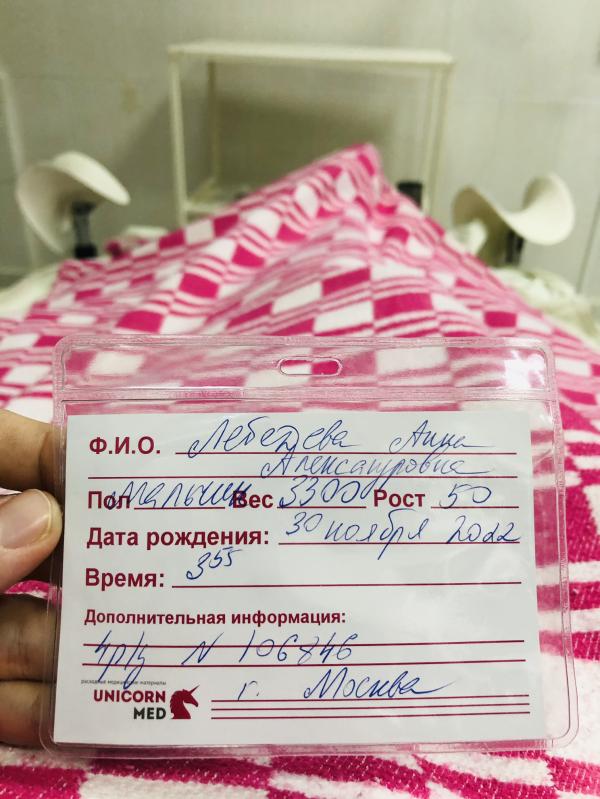 Ф.И.О. Лебедева Анна
Александровна
Пол мальчик Вес 3300 Рост 50
Дата рождения: 30 ноября 2022
Время: 3 55
Дополнительная информация:
N 106846
расходные медицинские материалы
UNICORN
MED
г. Москва